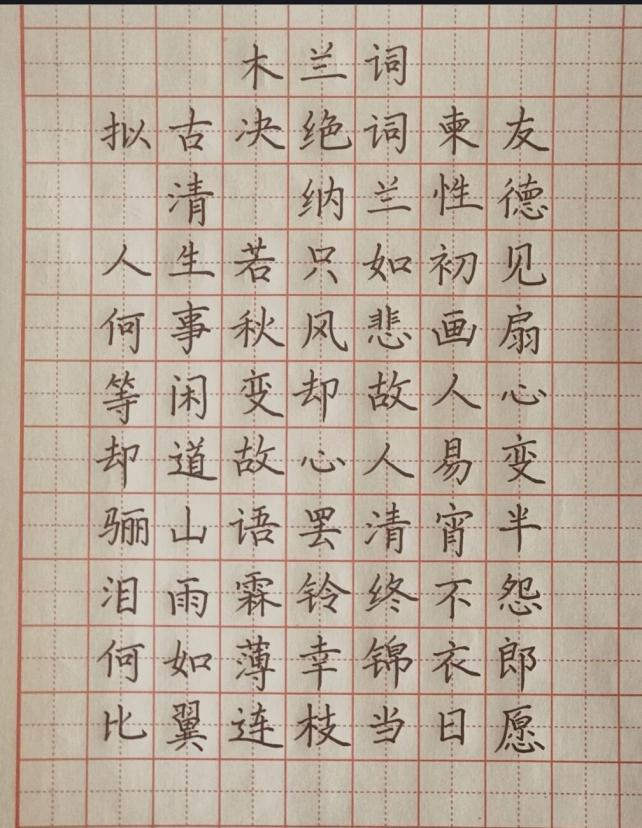 木兰词
拟古决绝词柬友
清 纳兰性德
人生若只如初见
何事秋风悲画扇
等闲变却故人心
却道故心人易变
骊山语罢清宵半
泪雨霖铃终不怨
何如薄幸锦衣郎
比翼连枝当日愿